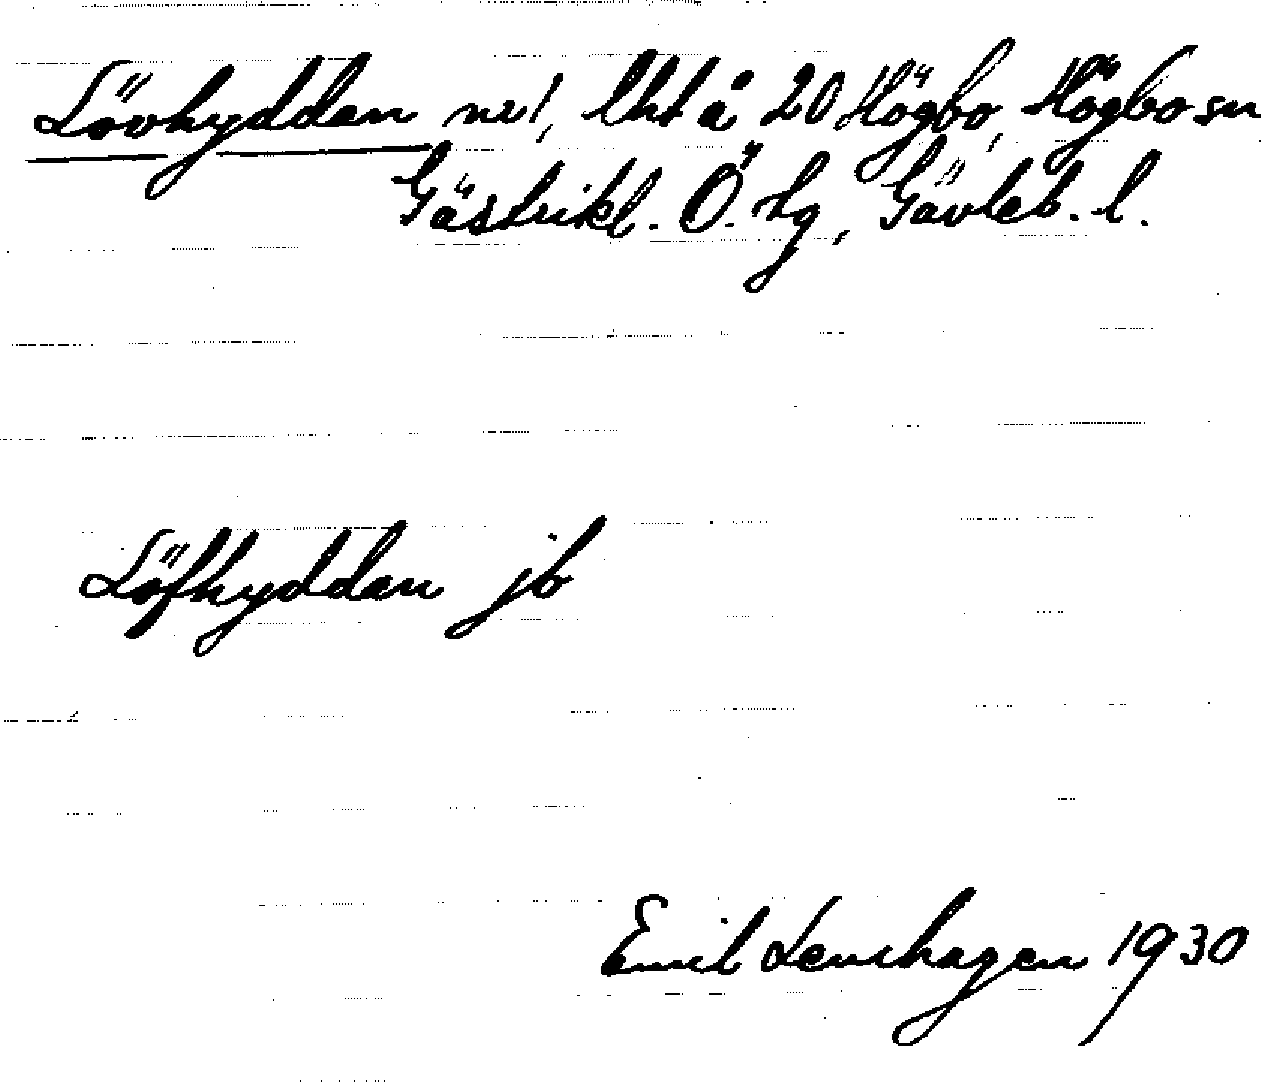 Lövhyddan nr 1, lht å 20 Högbo, Högbo sn
Gästrikl. Ö. tg, Gävleb. l.
Löfhyddan jb
Emil Lenhagen 1930